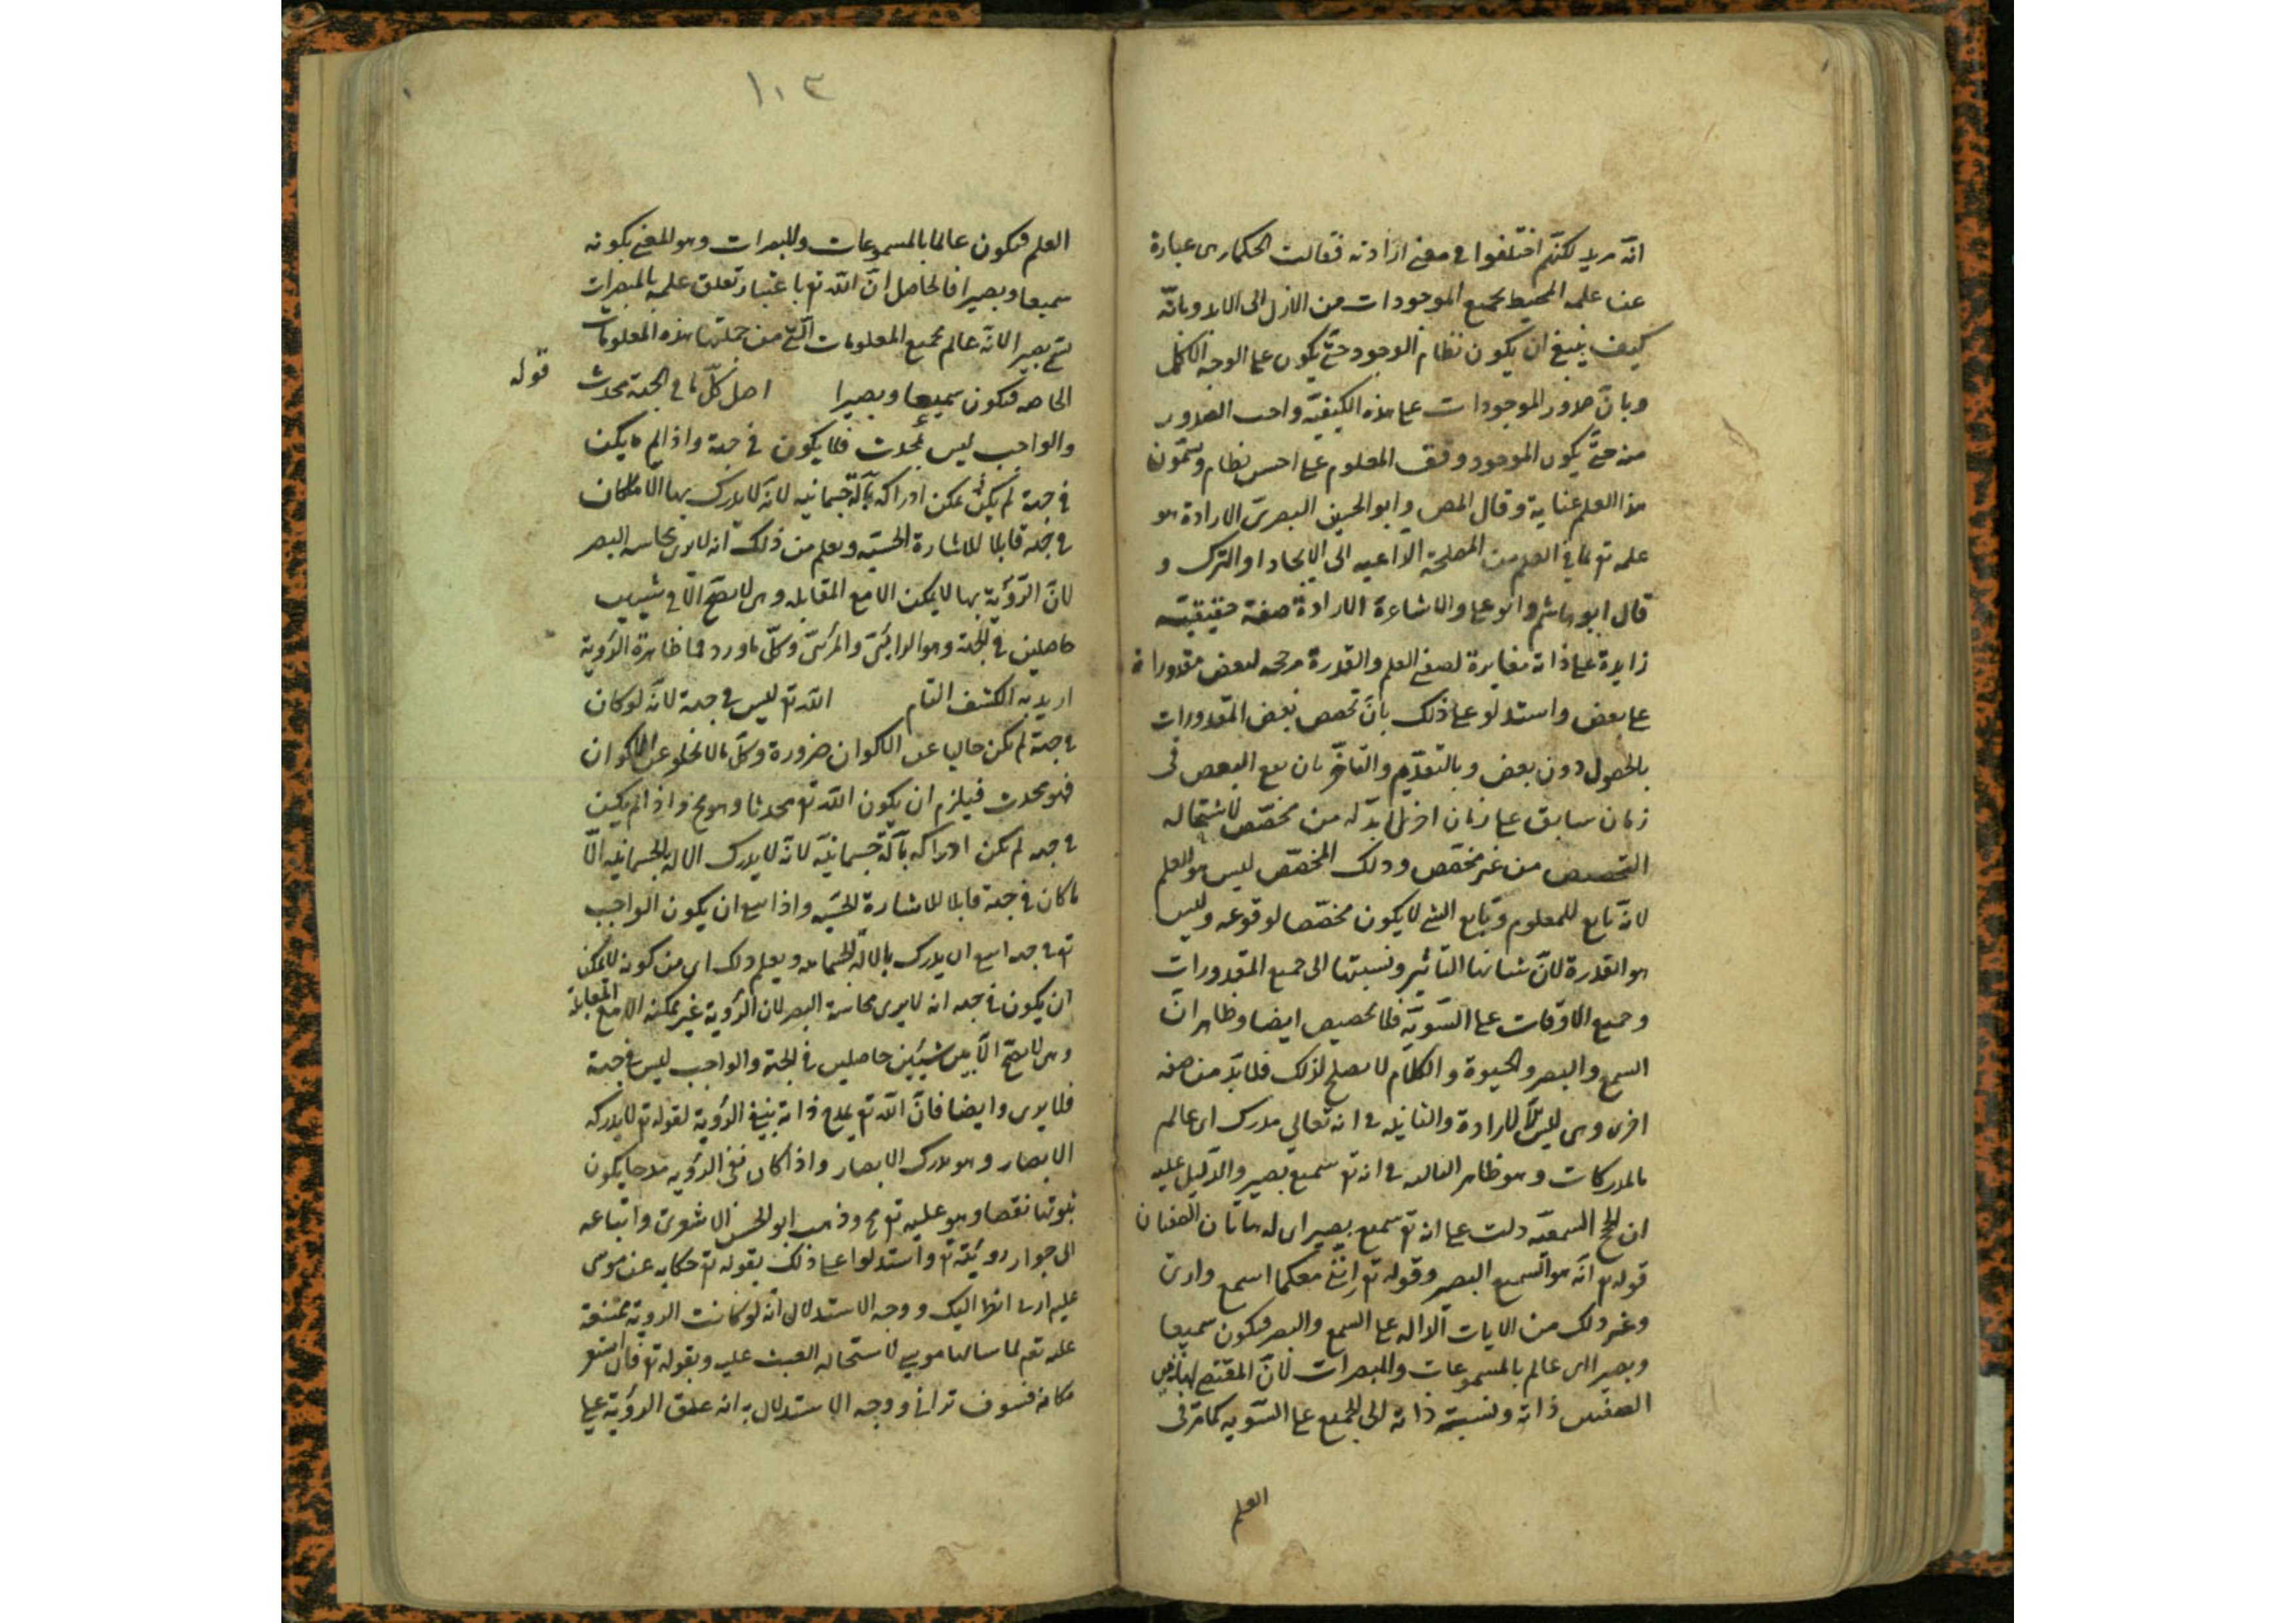 انه مريد لكنهم اختلفوا في معنى ارادته فقالت الحكماء هي عبارة
عن علمه المحيط بجميع الموجودات من الازل الى الابد وبانه
كيف ينبغي ان يكون نظام الوجود حتى يكون على الوجه الاكمل
وبان صدور الموجودات على هذه الكيفية واجب الصدور
منه حتى يكون الموجود وفق المعلوم على احسن نظام ويسمون
هذا العلم عناية وقال المص وابو الحسين البصري الارادة هو
علمه تع بما في الفعل من المصلحة الداعيه الى الايجاد او الترك و
قال ابو هاشم وابو علي والاشاعرة الارادة صفة حقيقية
زايدة على ذاته مغايرة لصفتي العلم والقدرة مرجحه لبعض مقدوراته
على بعض واستدلوا على ذلك بان تخصص بعض المقدورات
بالحصول دون بعض وبالتقدم والتاخر بان يقع البعض في
زمان سابق على زمان اخر لا بد له من مخصص لاستحاله
التخصص من غير مخصص وذلك المخصص ليس هو العلم
لانه تابع للمعلوم وتابع الشي لا يكون مخصصا لوقوعه وليس
هو القدرة لان شانها التاثير ونسبتها الى جميع المقدورات
وجميع الاوقات على السوية فلا تخصيص ايضا وظاهر ان
السمع والبصر والحيوة والكلام لا يصلح لذلك فلا بد من صفه
اخرى وهي ليس الا الارادة والثانيه في انه تعالى مدرك اي عالم
بالمدركات وهو ظاهر الثالثه في انه تع سميع بصير والدليل عليه
ان الحجج السمعيه دلت على انه تع سميع بصير اي له هاتان الصفتان
قوله تع انه هو السميع البصير وقوله تع انني معكما اسمع وارى
وغير ذلك من الايات الداله على السمع والبصر فيكون سميعا
وبصيرا اي عالم بالمسموعات والمبصرات لان المقتضي لهاتين
الصفتين ذاته ونسبة ذاته الى الجميع على السويه كما مر في
العلم
١٠٣
العلم فيكون عالما بالمسموعات والمبصرات وهو المعنى بكونه
سميعا وبصيرا فالحاصل ان الله تع باعتبار تعلق علمه بالمبصرات
يسمى بصيرا لانه عالم بجميع المعلومات التي من جملتها هذه المعلومات
الخاصه فيكون سميعا وبصيرا اصل كل ما في الجهة محدث
قوله
والواجب ليس بمحدث فلا يكون في جهة واذا لم يكن
في جهة لم يكن يمكن ادراكه بآلة جسمانيه لانه لا يدرك بها الا ما كان
في جهة قابلا للاشارة الحسيه ويعلم من ذلك انه لا يرى بحاسه البصر
لان الرؤية بها لا يمكن الا مع المقابله وهي لا تصح الا في شيئين
حاصلين في الجهة وهو الرائي والمرئي وكل ما ورد مما ظاهره الرؤية
اريد به الكشف التام الله تع ليس في جهة لانه لو كان
في جهة لم يكن خاليا عن الاكوان ضرورة وكل ما لا يخلو عن الاكوان
فهو محدث فيلزم ان يكون الله تع محدثا وهو مح واذا لم يكن
في جهه لم يمكن ادراكه بآلة جسمانيه لانه لا يدرك الاله الجسمانيه الا
ما كان في جهة قابلا للاشارة الحسيه واذا امتنع ان يكون الواجب
تع في جهه امتنع ان يدرك بالاله الجسمانيه ويعلم ذلك اي من كونه لا يمكن
ان يكون في جهه انه لا يرى بحاسة البصر لان الرؤية غير ممكنه الا مع المقابلة
وهي لا تصح الا بين شيئين حاصلين في الجهة والواجب ليس في جهة
فلا يرى وايضا فان الله تع يمدح ذاته بنفي الرؤية لقوله تع لا يدركه
الابصار وهو يدرك الابصار واذا كان نفي الرؤيه مدحا يكون
ثبوتها نقصا وهو عليه تع مح وذهب ابو الحسن الاشعري واتباعه
الى جواز رويته تع واستدلوا على ذلك بقوله تع حكايه عن موسى
عليه ارني انظر اليك ووجه الاستدلال انه لو كانت الروية ممتنعة
عليه تع لما سالها موسى لاستحاله العبث عليه وبقوله تع فان استقر
مكانه فسوف تراني ووجه الاستدلال به انه علق الرؤية على